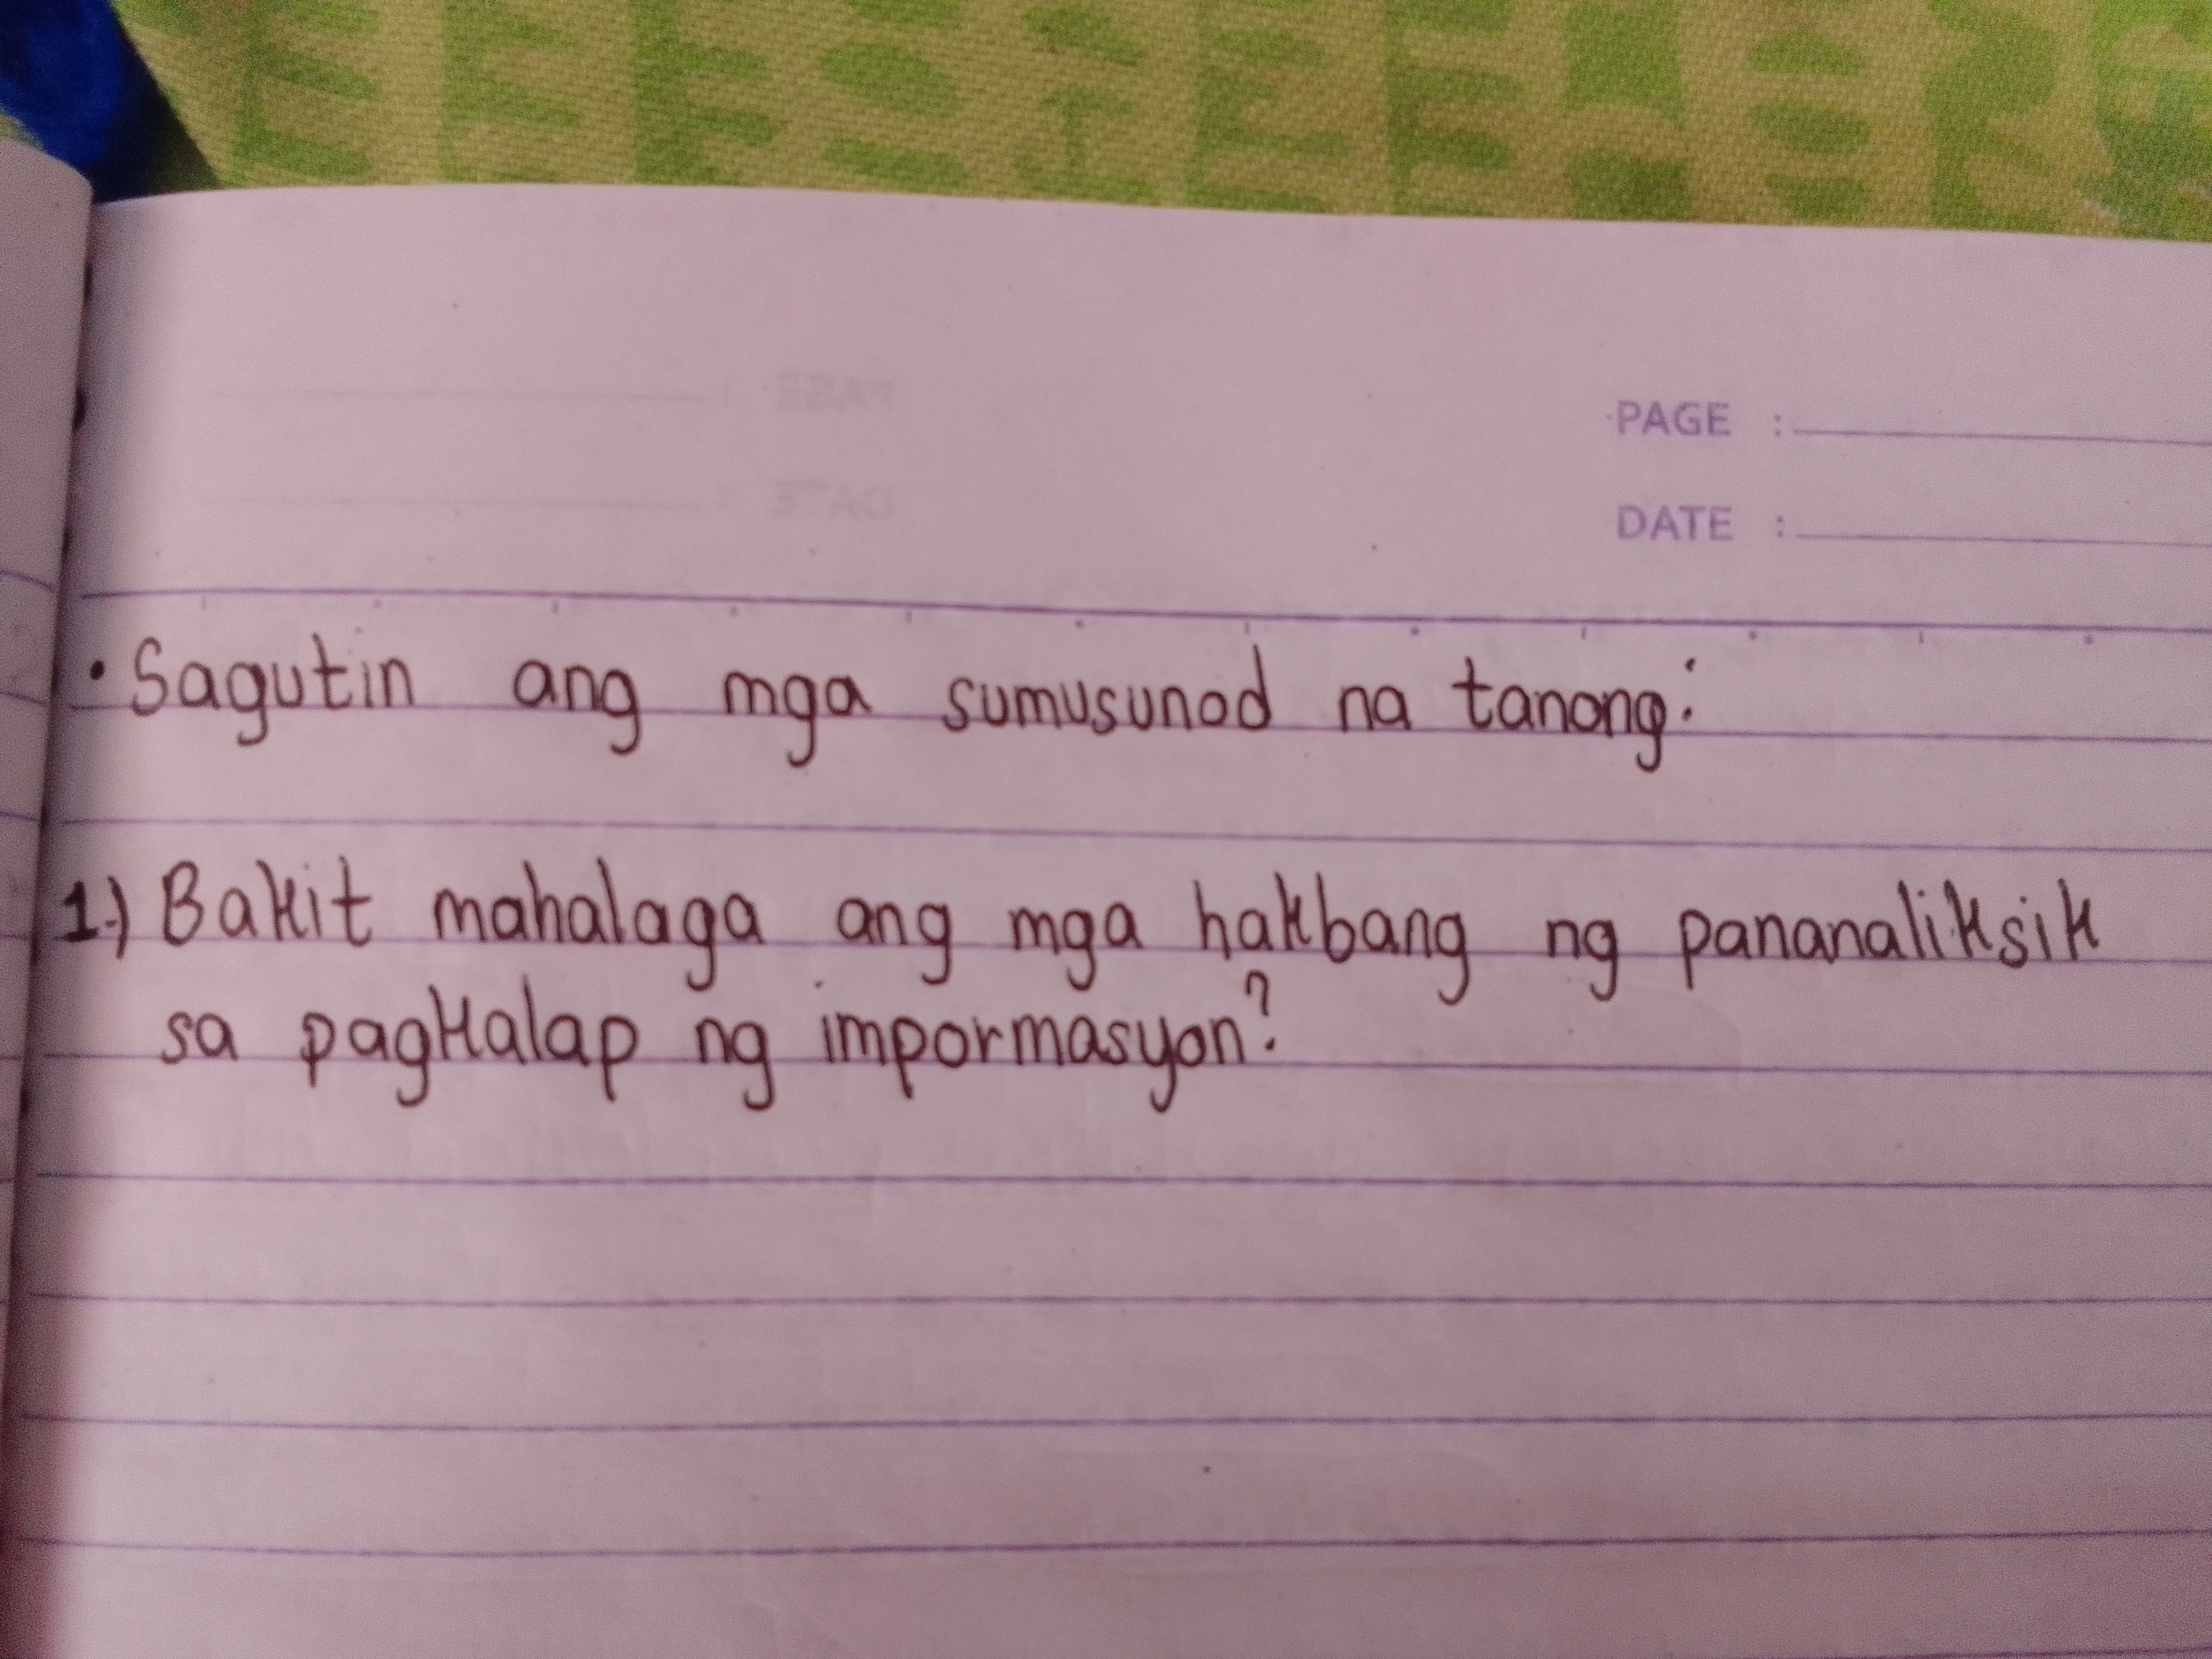 PAGE :
DATE :
• Sagutin ang mga sumusunod na tanong:
1.) Bakit mahalaga ang mga hakbang ng pananaliksik
sa pagkalap ng impormasyon?